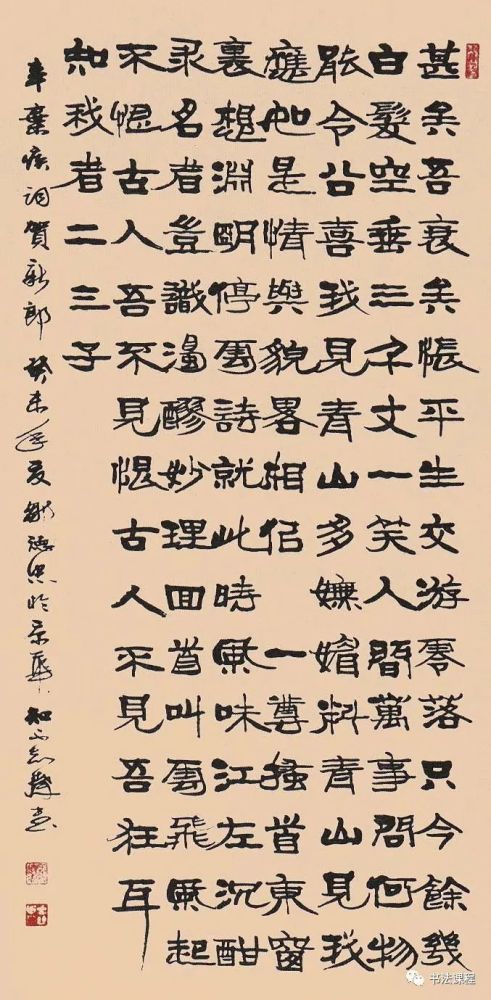 甚矣吾衰矣悵平生交游零落只今餘幾
白髮空垂三千丈一笑人間萬事問何物
能令公喜我見青山多嫵媚料青山見我
應如是情與貌畧相佀 一尊搔首東窗
裏想淵明停雲詩就此時風味江左沉酣
求名者豈識濁醪妙理回首叫雲飛風起
不恨古人吾不見恨古人不見吾狂耳
知我者二三子
辛棄疾詞賀新郎 癸未年夏 於京華
书法课程